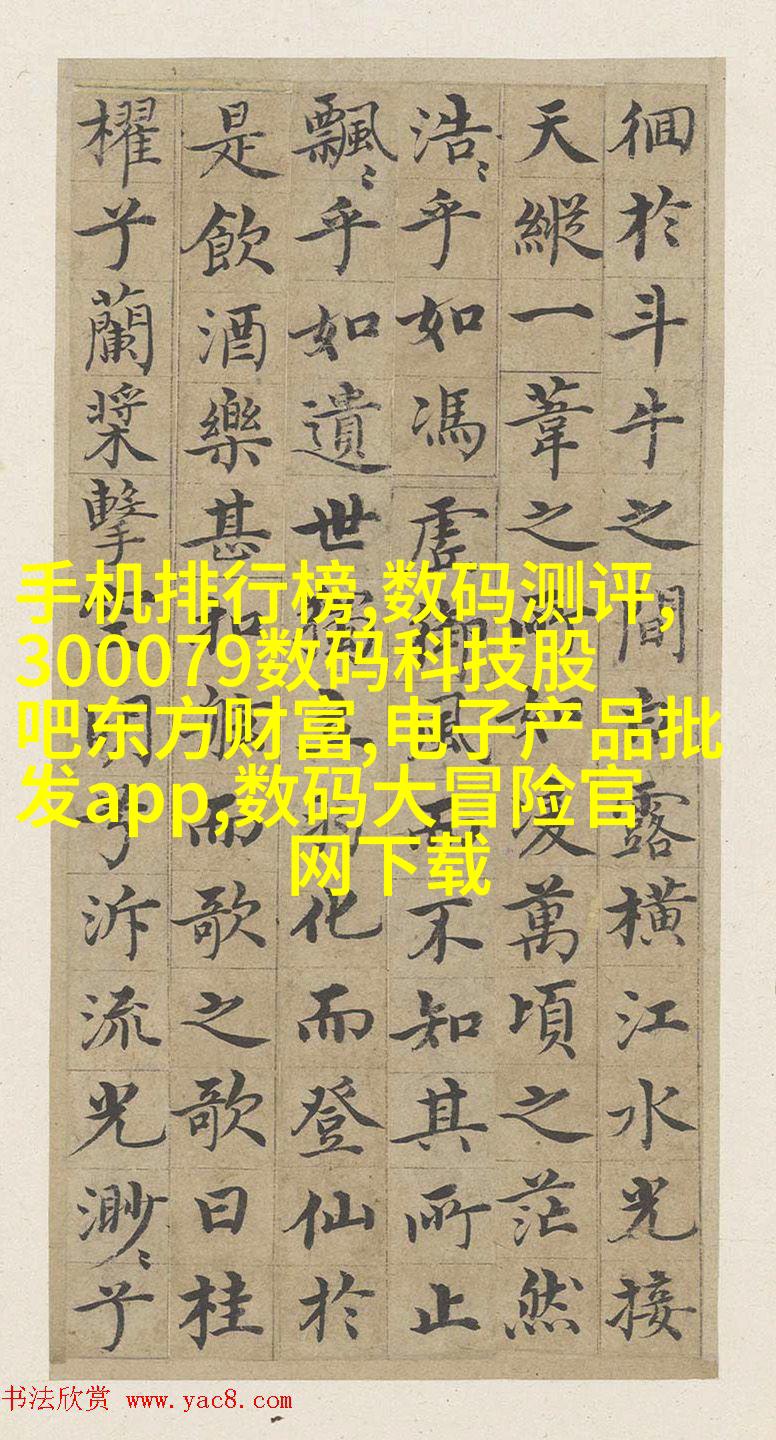 徊於斗牛之間露橫江水光接
天縱一葦之所如凌萬頃之茫然
浩〻乎如馮虛御風而不知其所止
飄〻乎如遺世獨立羽化而登仙於
是飲酒樂甚扣舷而歌之歌曰桂
櫂兮蘭槳擊空明兮泝流光渺〻兮
手机排行榜,数码测评,
300079数码科技股
吧东方财富,电子产品批
发app,数码大冒险官
网下载
书法欣赏 www.yac8.com